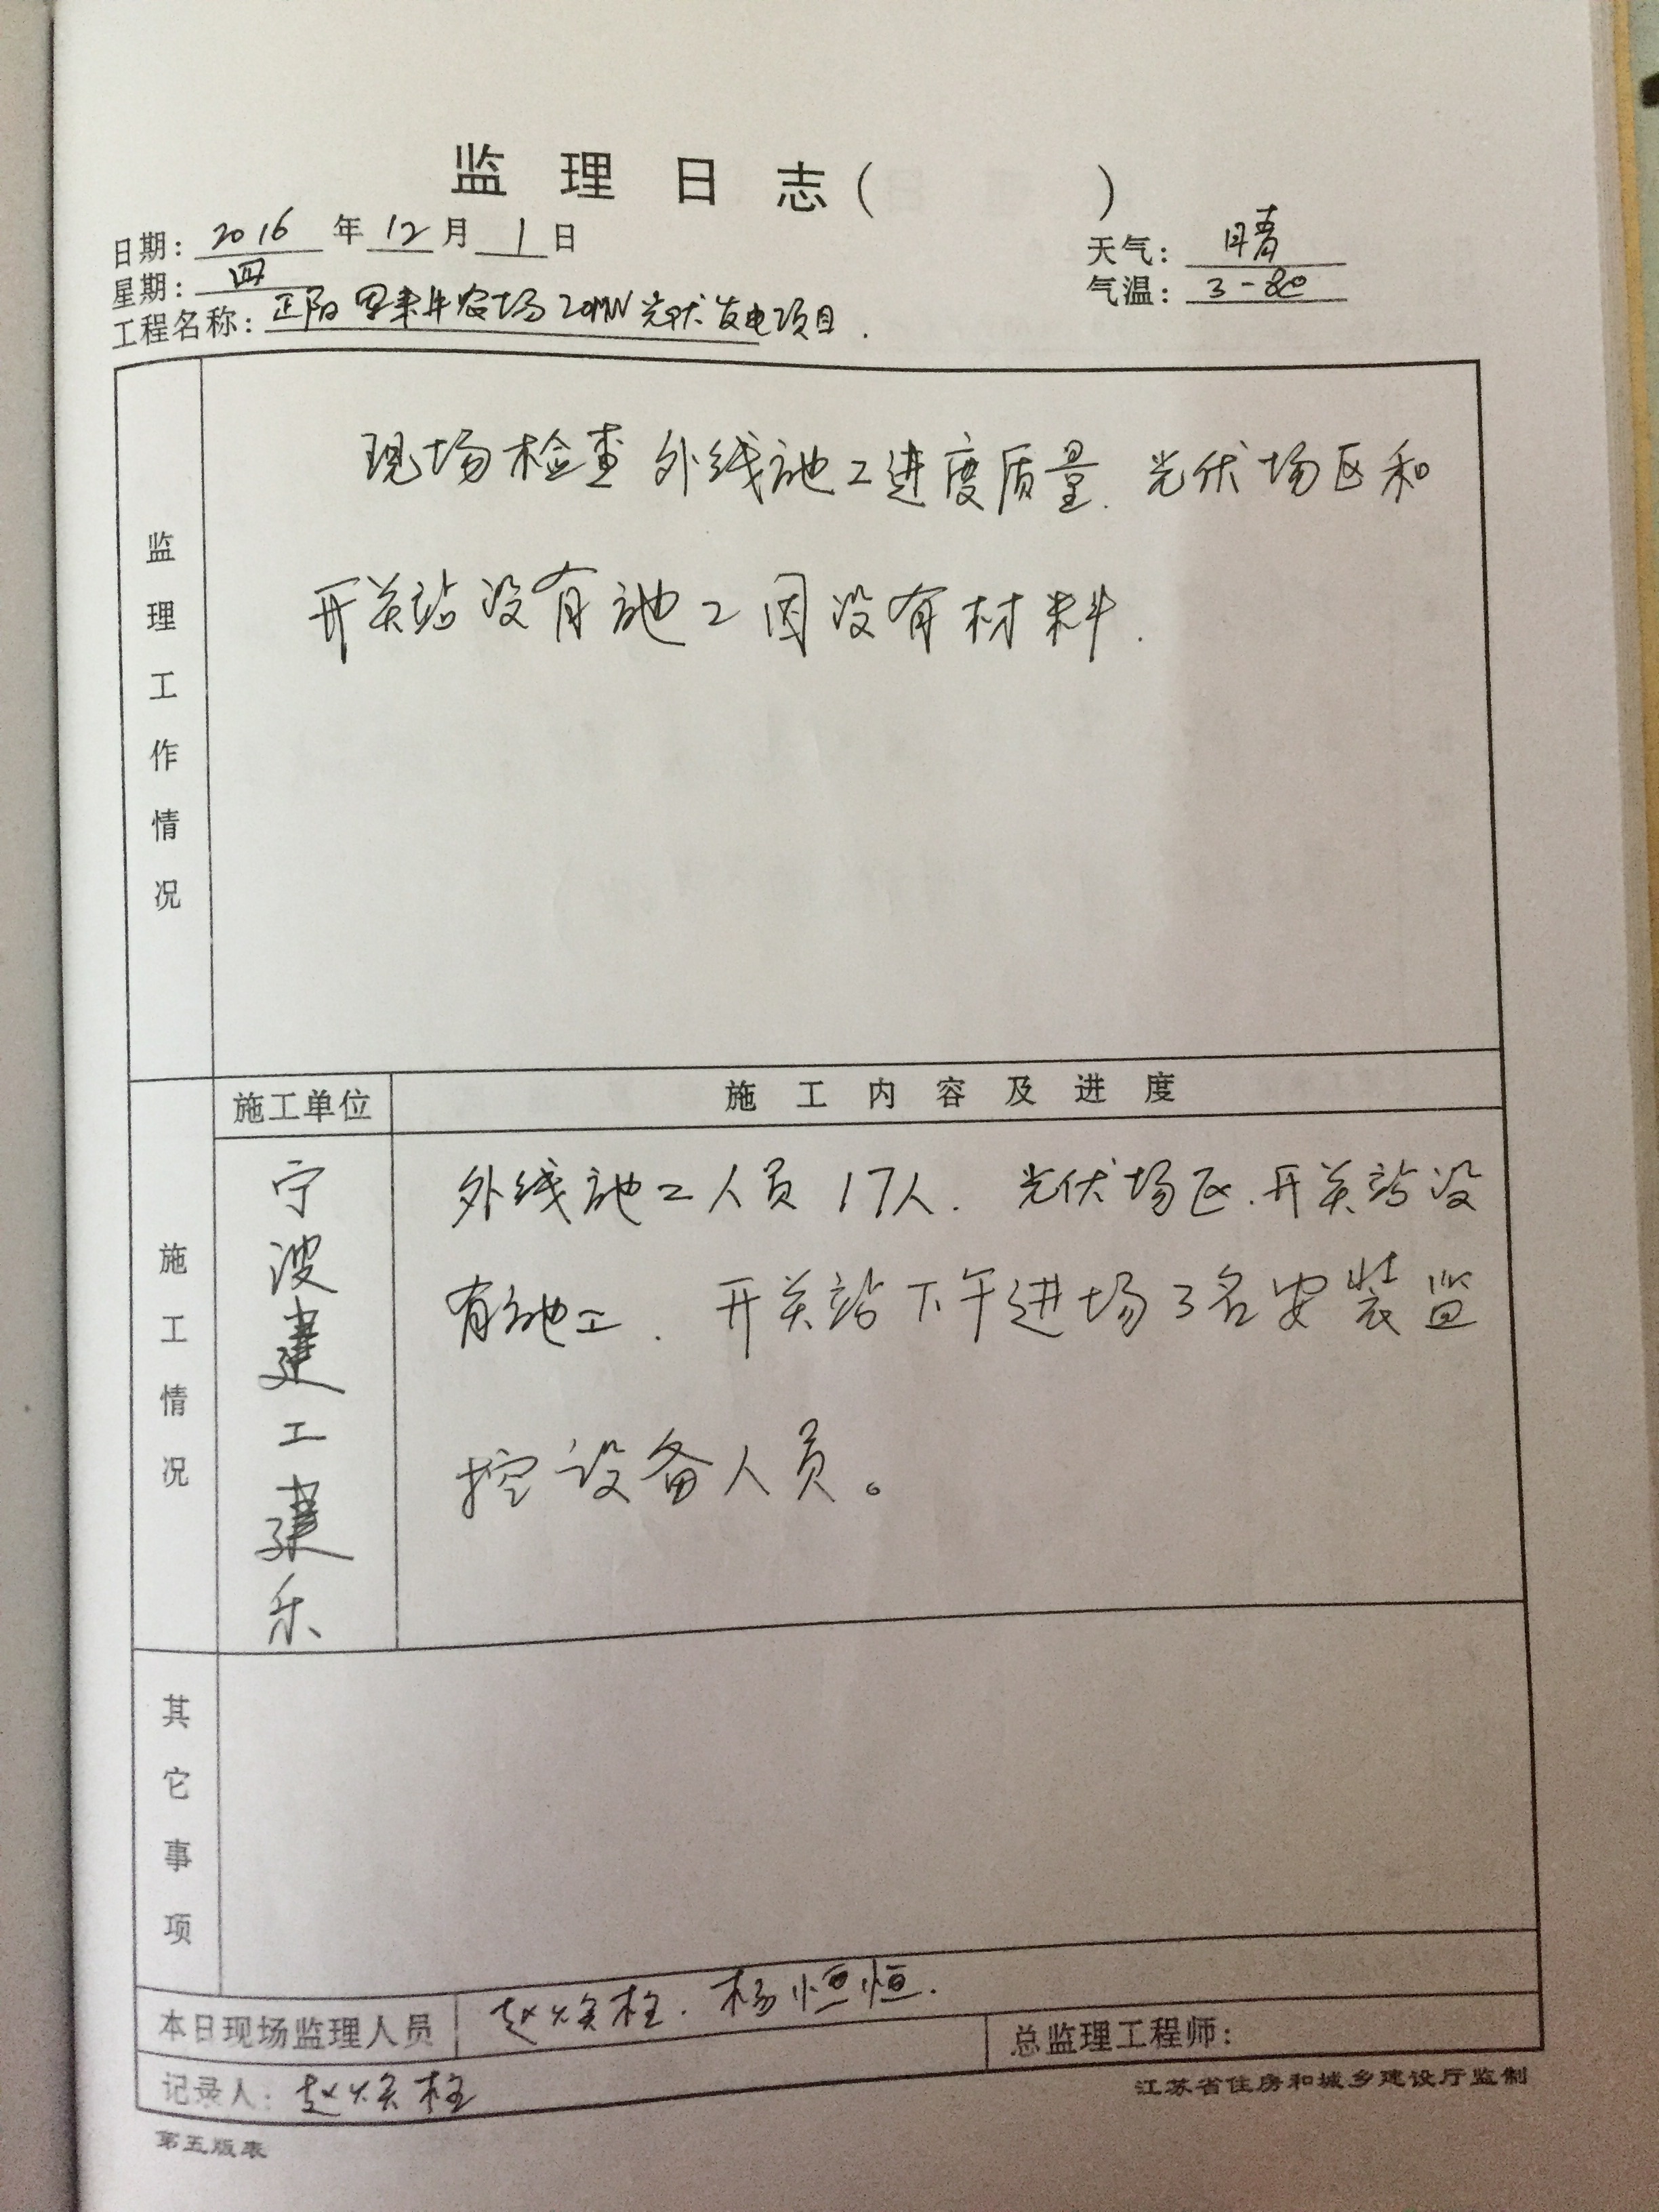 监理日志(　　　)
日期：2016年12月1日　天气：晴
星期：四　气温：3-8℃
工程名称：正阳　农场20MW光伏发电项目.
监理工作情况
现场检查外线施工进度质量.光伏场区和
开关站没有施工因没有材料.
施工单位　施工内容及进度
施工情况
宁波建工建乐
外线施工人员17人.光伏场区.开关站没
有施工.开关站下午进场3名安装监
控设备人员。
其它事项
本日现场监理人员　赵焕柱.杨恒恒.
记录人：赵焕柱　总监理工程师：
江苏省住房和城乡建设厅监制
第五版表